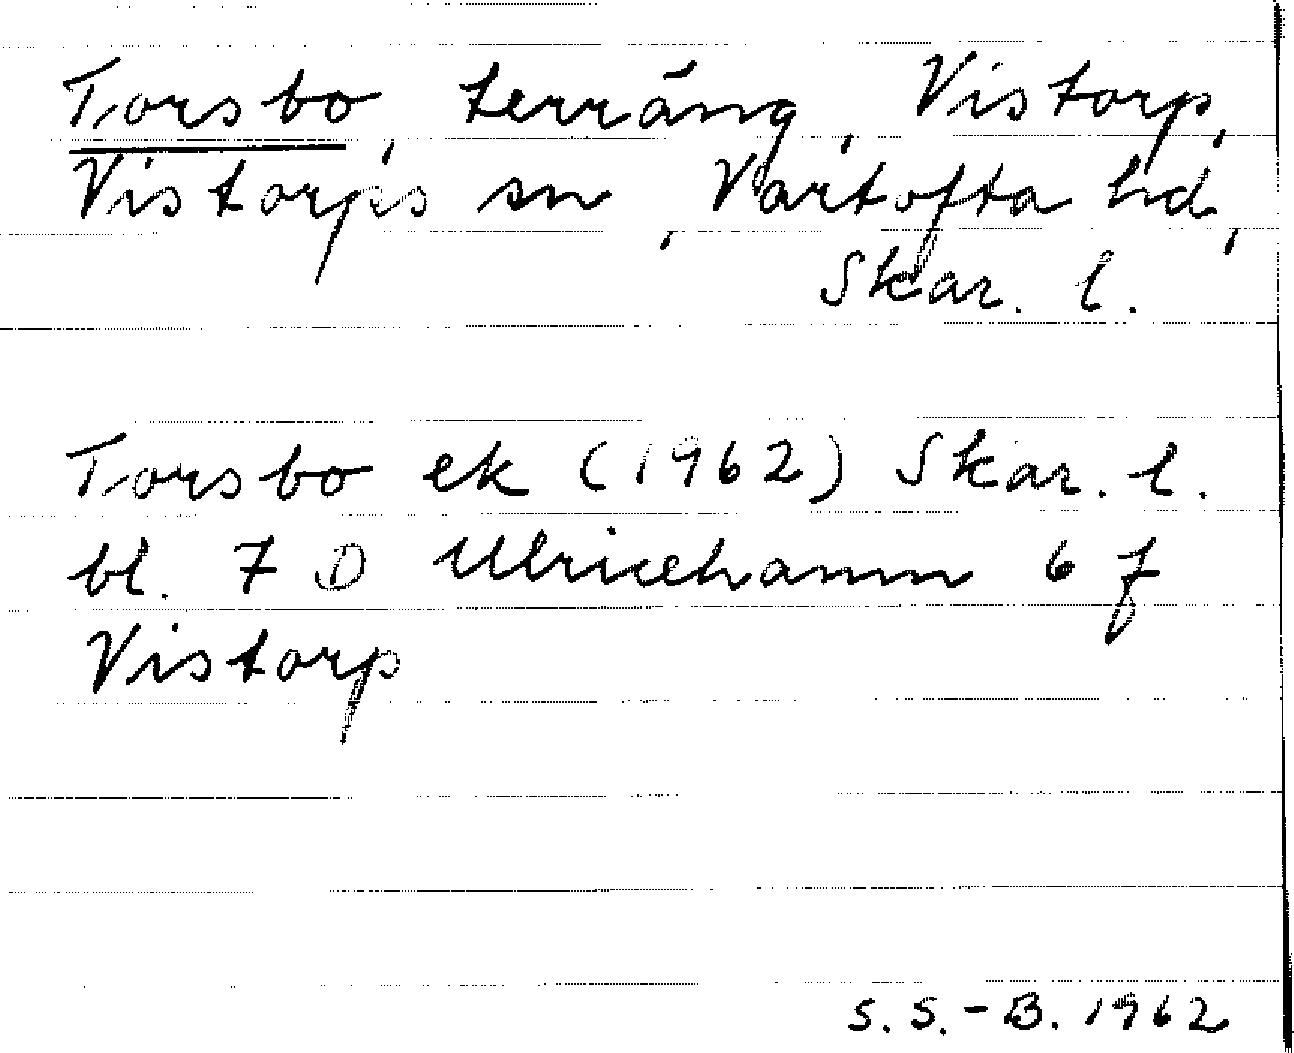 Torsbo, terräng, Vistorp,
Vistorps sn, Vartofta hd,
Skar. l.
Torsbo ek (1962) Skar. l.
bl. 7 D Ulricehamn 6 f
Vistorp
S. S.-B. 1962